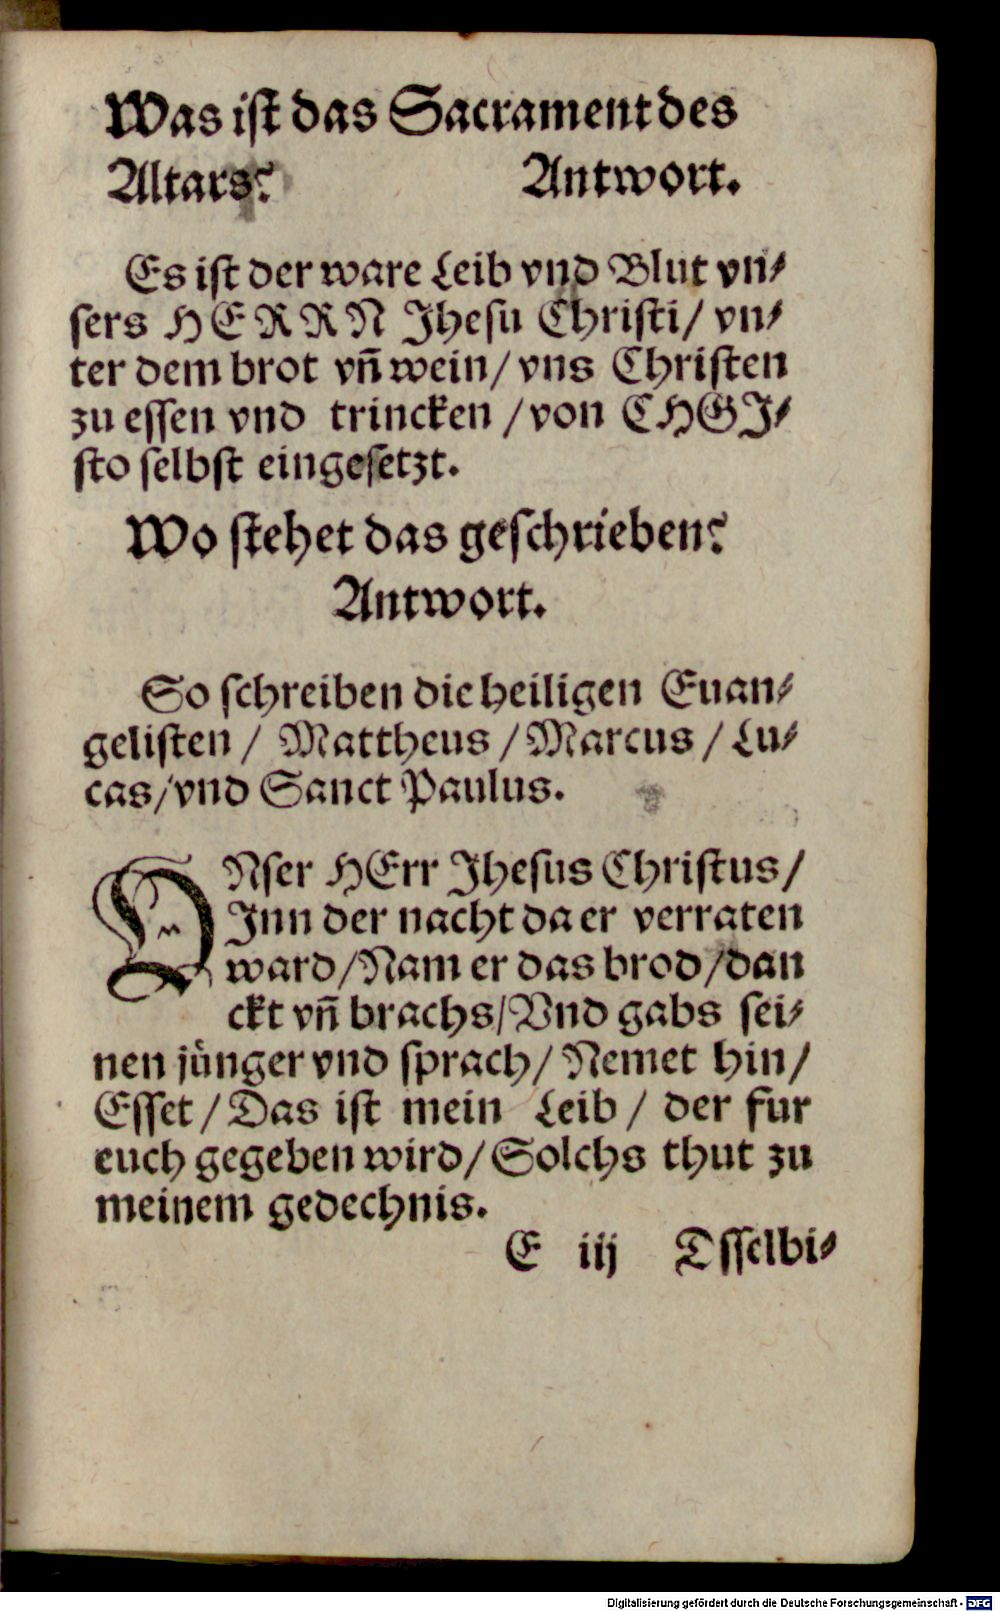 Was ist das Sacrament des
Altars? Antwort.
Es ist der ware Leib vnd Blut vn⸗
sers HERRN Jhesu Christi/ vn⸗
ter dem brot vn̄ wein/ vns Christen
zu essen vnd trincken /von CHGJ⸗
sto selbst eingesetzt.
Wo stehet das geschrieben?
Antwort.
So schreiben die heiligen Euan⸗
gelisten / Mattheus / Marcus / Lu⸗
cas/ vnd Sanct Paulus.
VNser HErr Jhesus Christus/
Jnn der nacht da er verraten
ward/ Nam er das brod/ dan
ckt vn̄ brachs/ Vnd gabs sei⸗
nen jünger vnd sprach/ Nemet hin/
Esset / Das ist mein Leib / der fur
euch gegeben wird/ Solchs thut zu
meinem gedechnis.
E iij Dsselbi⸗
Digitalisierung gefördert durch die Deutsche Forschungsgemeinschaft - DFG